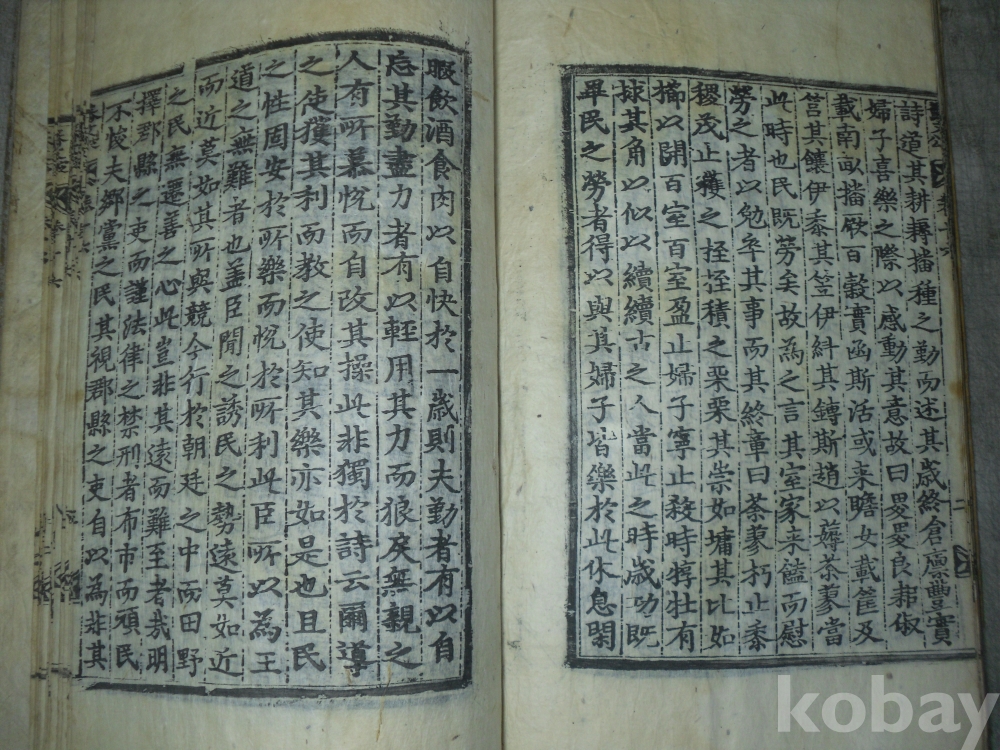 詩道其耕耨播種之勤而述其歳終倉廩豐實
婦子喜樂之際以感動其意故曰畟畟良耜俶
載南畝播厥百穀實函斯活或来瞻女載筐及
筥其饟伊黍其笠伊糾其鎛斯趙以薅荼蓼當
此時也民既勞矣故為之言其室家来饁而慰
勞之者以勉卒其事而其終章曰荼蓼朽止黍
稷茂止穫之挃挃積之栗栗其崇如墉其比如
櫛以開百室百室盈止婦子寧止殺時犉牡有
捄其角以似以續續古之人當此之時歳功既
畢民之勞者得以與其婦子皆樂於此休息閑
暇飲酒食肉以自快於一歳則夫勤者有以自
忘其勤盡力者有以輕用其力而狼戾無親之
人有所慕悅而自改其操此非獨於詩云爾導
之使獲其利而教之使知其樂亦如是也且民
之性固安於所樂而悅於所利此臣所以為王
道之無難者也盖臣聞之誘民之勢遠莫如近
而近莫如其所與競今行於朝廷之中而田野
之民無遷善之心此豈非其遠而難至者㦲明
擇郡縣之吏而謹法律之禁刑者布市而頑民
不悛夫鄉黨之民其視郡縣之吏自以為非其
kobay